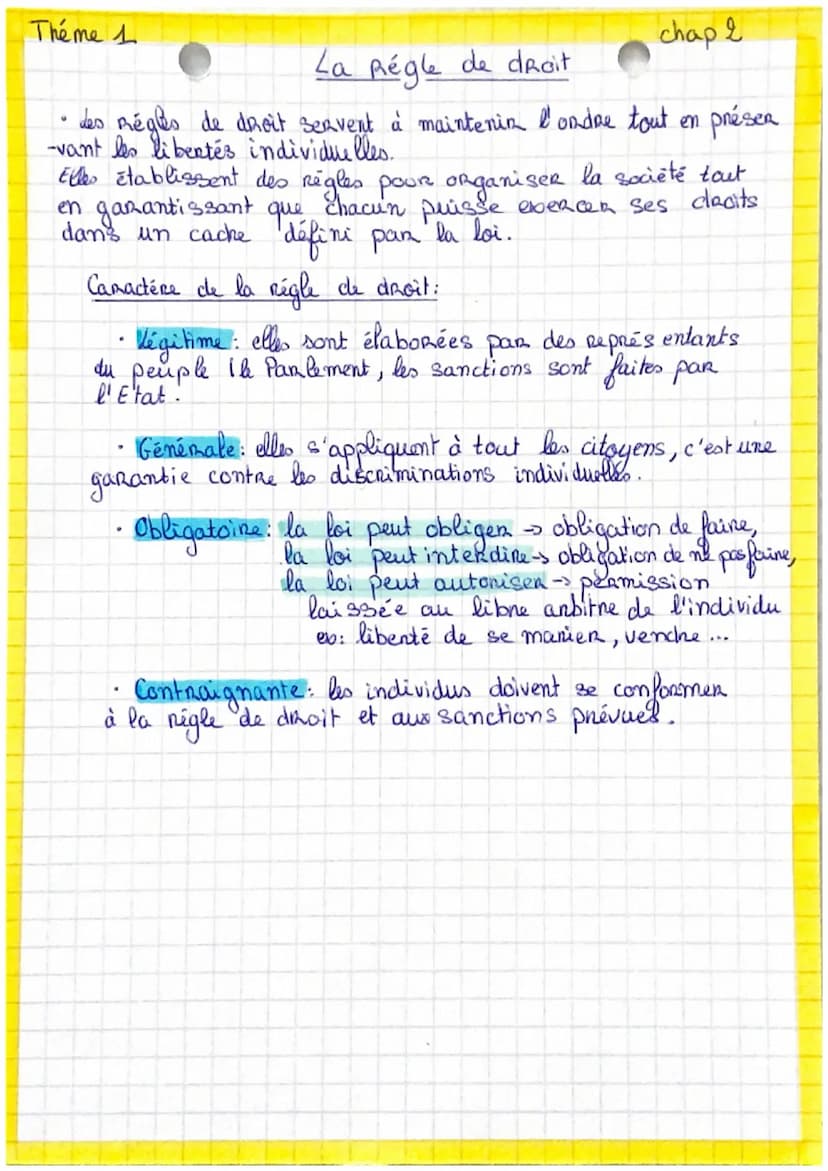 Théme 1
chap 2
La Régle de droit
• des Régles de droit servent à maintenir l'ordre tout en préser
-vant les libertés individuelles.
Elles établissent des régles pour organiser la société tout
en garantissant que chacun puisse exercer ses droits
dans un cache défini par la loi.
Caractére de la régle de droit:
• Légitime: elles sont élaborées par des représentants
du peuple (le Parlement, les sanctions sont faites par
l'Etat.
• Générale: elles s'appliquent à tout les citoyens, c'est une
garantie contre les discriminations individuelles.
• Obligatoire: la loi peut obliger → obligation de faire,
la loi peut interdire → obligation de ne pas faire,
la loi peut autoriser → permission
laissée au libre arbitre de l'individu
ex: liberté de se marier, vendre ...
• Contraignante: les individus doivent se conformer
à la régle de droit et aux sanctions prévues.